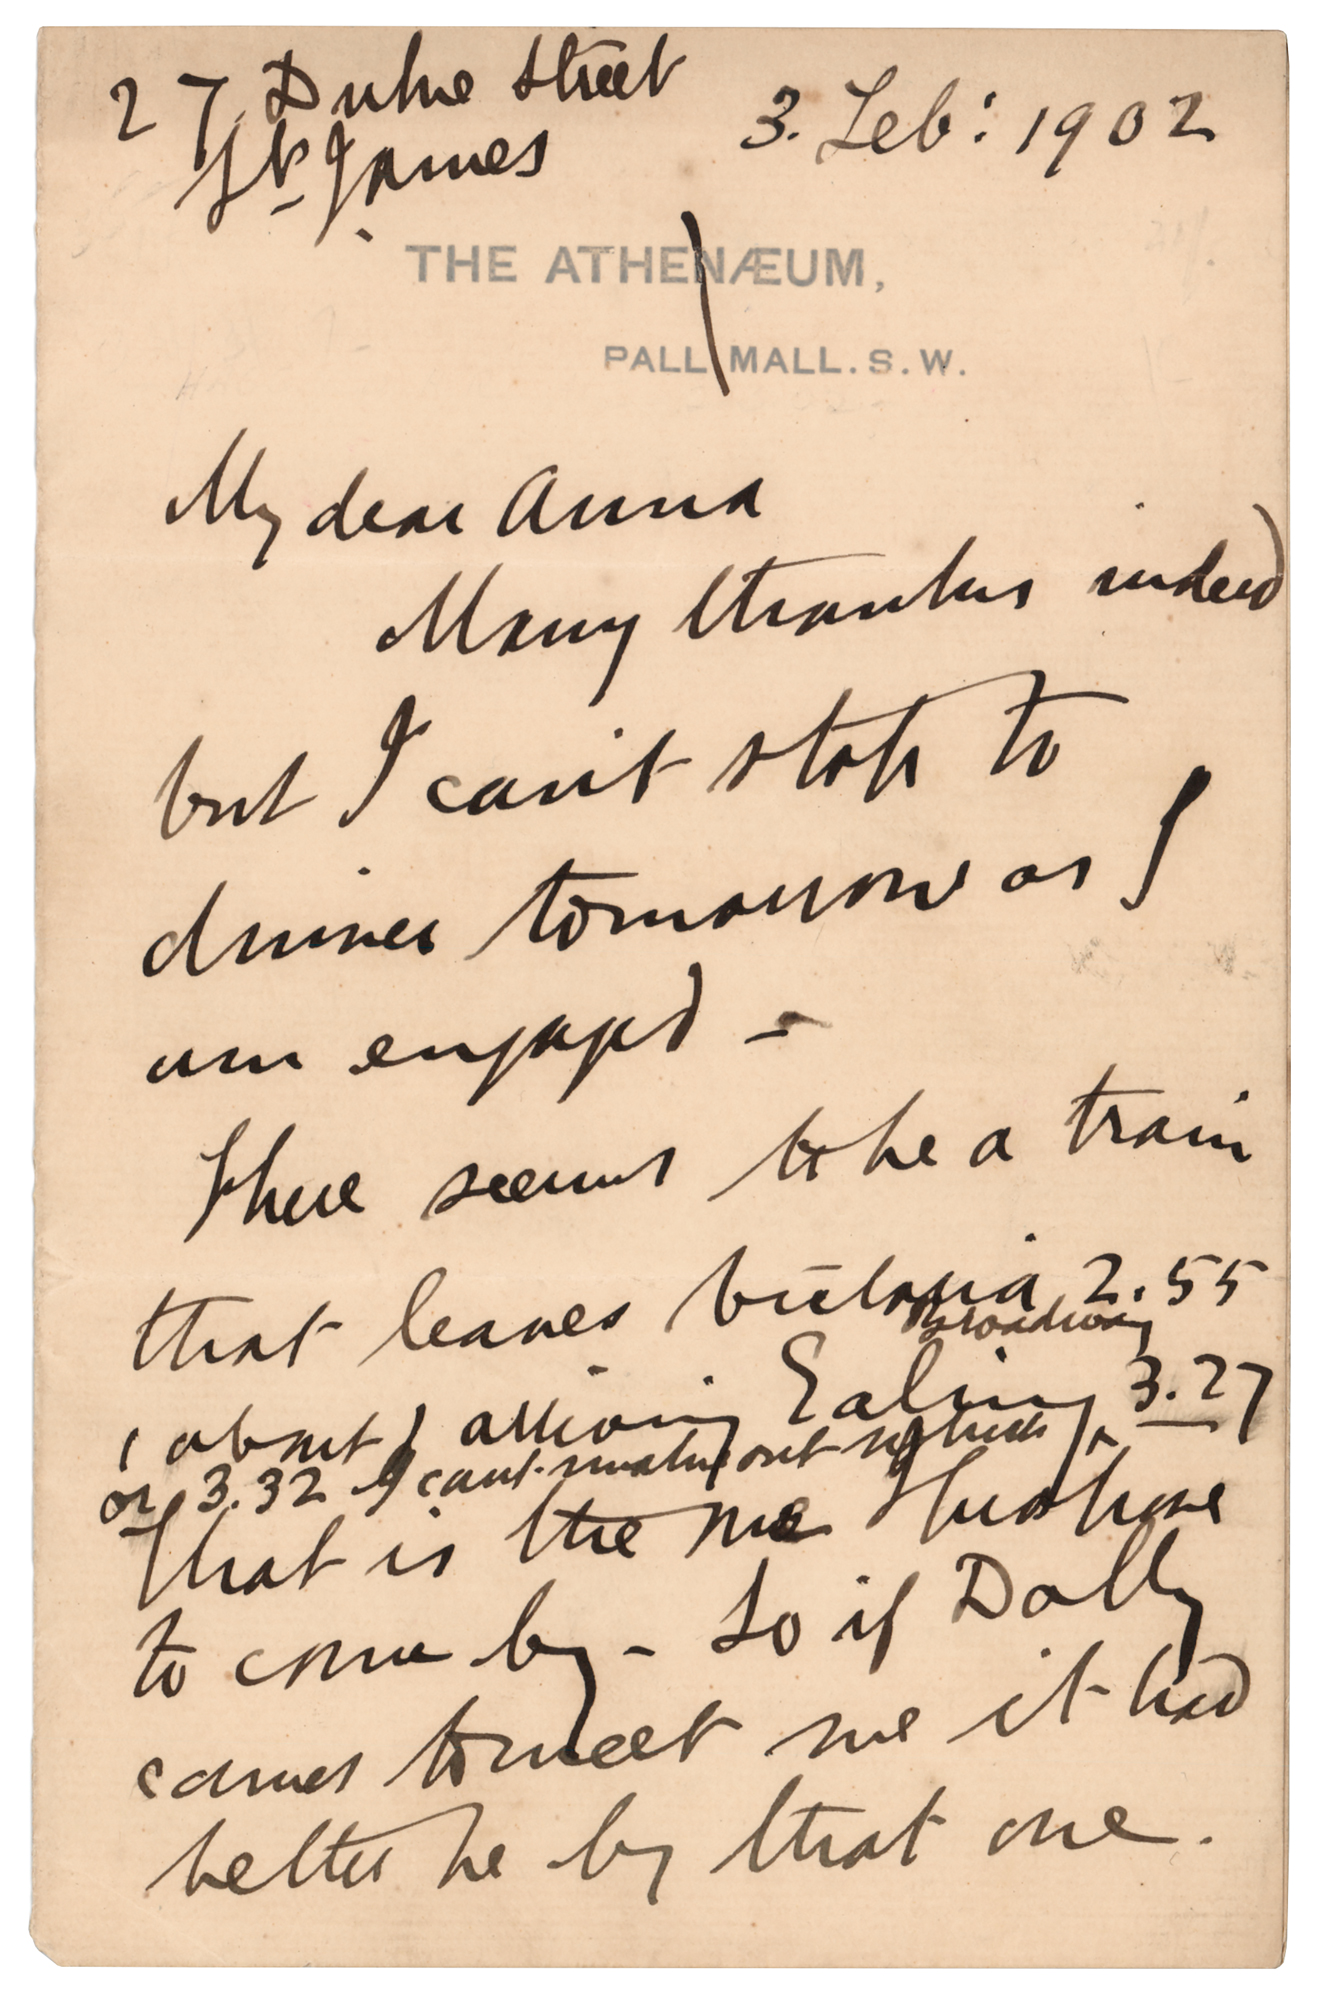 27 Duke Street
St. James
3. Feb: 1902
THE ATHENÆUM,
PALL MALL. S. W.
My dear Anna
Many thanks indeed
but I can't stop to
dinner tomorrow as I
am engaged -
There seems to be a train
that leaves Victoria 2.55
(about) arriving Ealing Broadway 3.27
or 3.32 I can't make out which
That is the one I purpose
to come by - So if Dolly
comes to meet me it had
better be by that one.